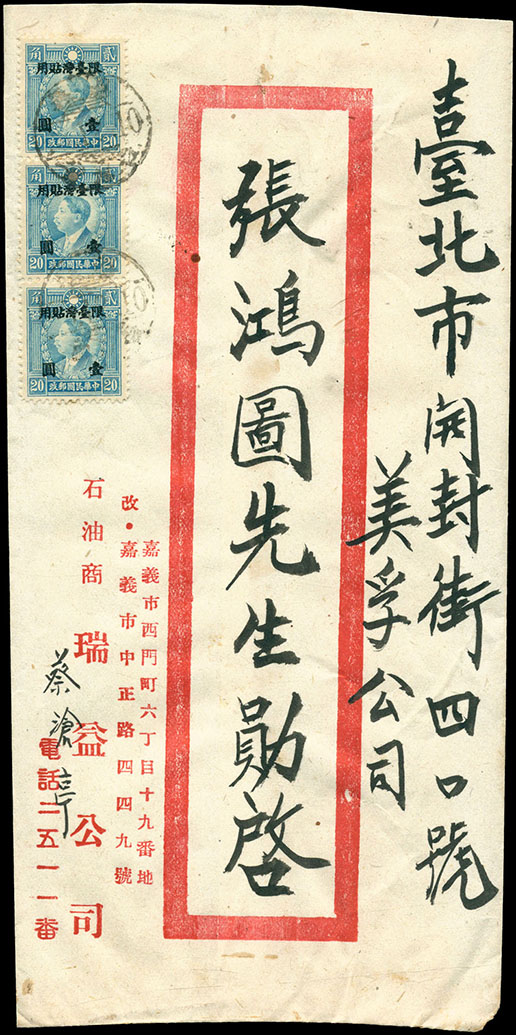 臺北市開封街四〇號
美孚公司
張鴻圖先生勛啓
嘉義市西門町六丁目十九番地
改・嘉義市中正路四四九號
石油商 瑞益公司
電話二五一一番
蔡滄
貳角
限臺灣貼用
壹圓
20 中華民國郵政 20
貳角
限臺灣貼用
壹圓
20 中華民國郵政 20
貳角
限臺灣貼用
壹圓
20 中華民國郵政 20